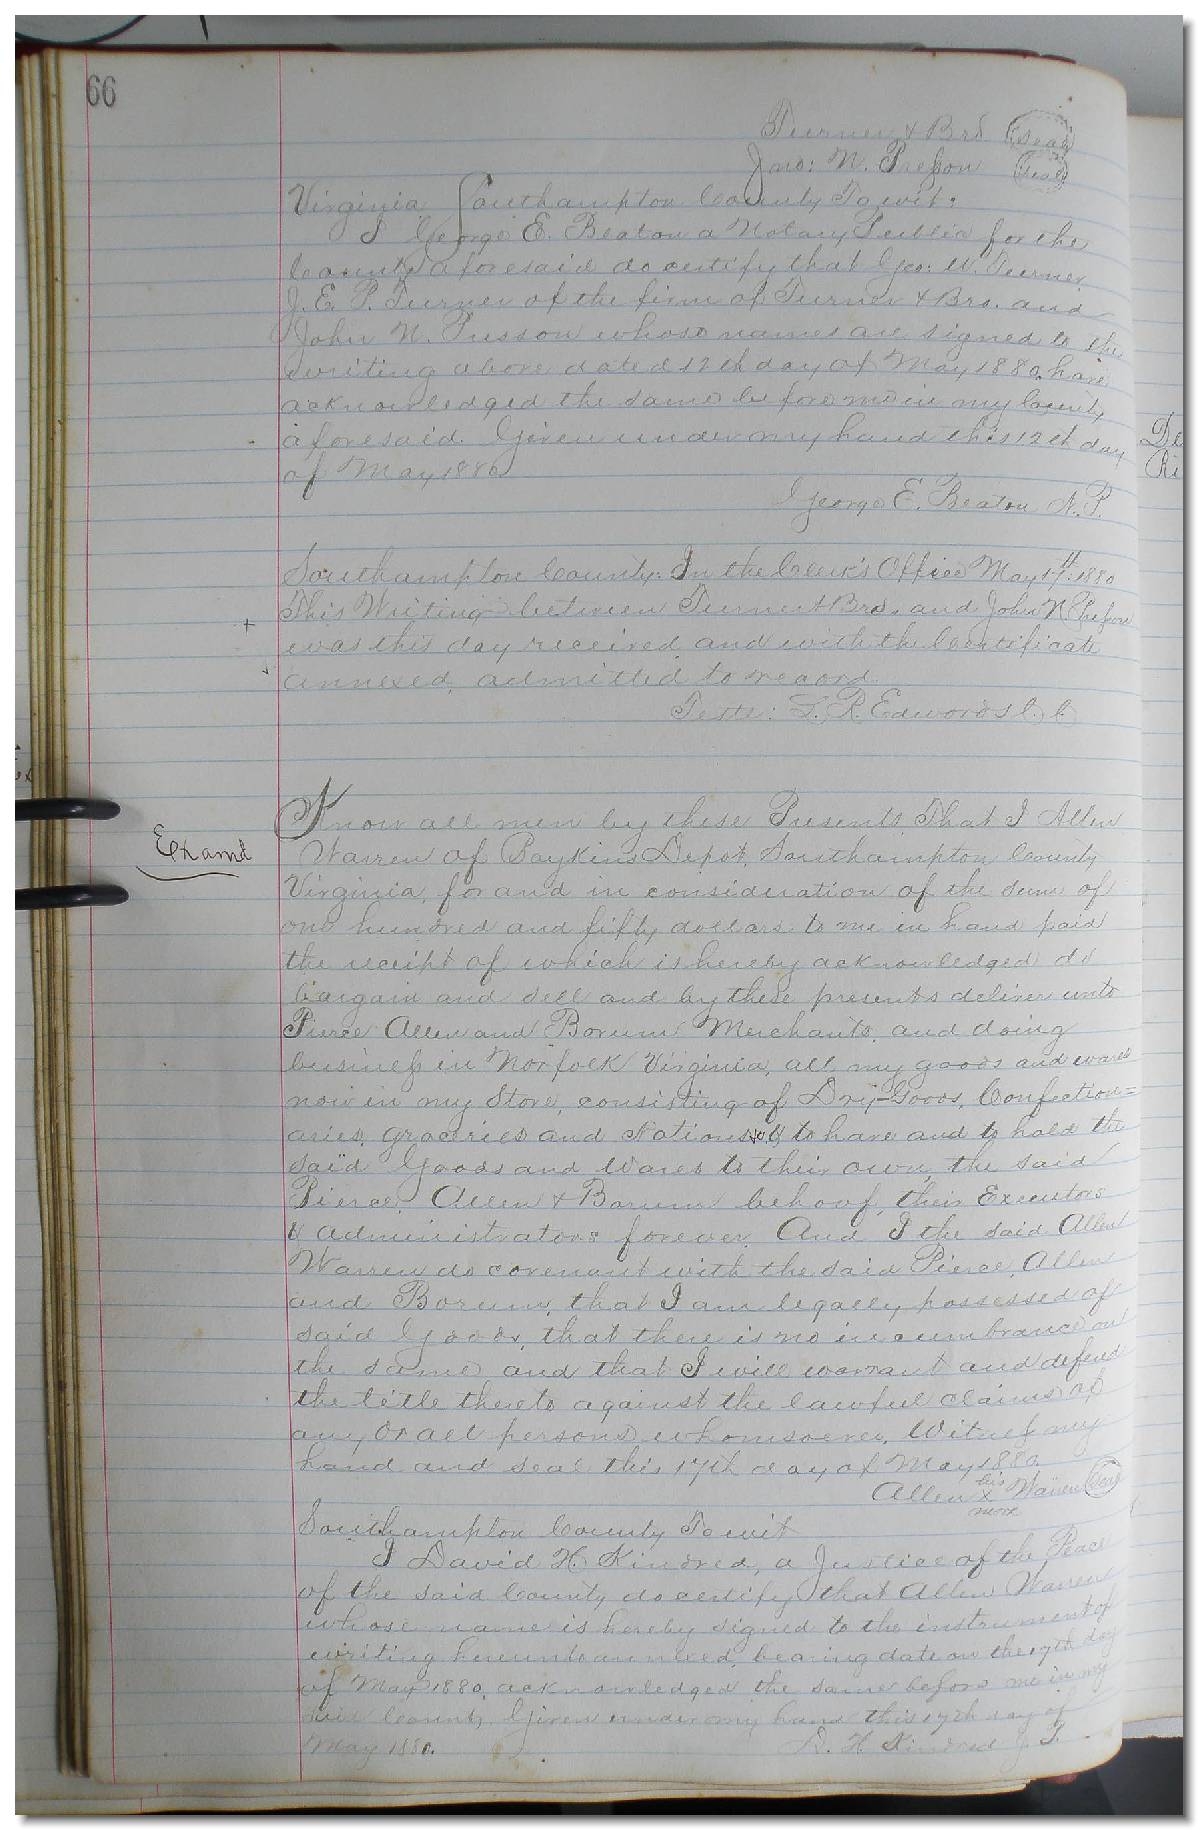 66
Turner & Bro (Seal)
Jno: N. Presson (Seal)
Virginia Southampton County To wit:
I George E. Beaton a Notary Public for the
County aforesaid do certify that Geo: W. Turner,
J. E. P. Turner of the firm of Turner & Bro. and
John N. Presson whose names are signed to the
writing above dated 12th day of May 1880, have
acknowledged the same before me in my County
aforesaid. Given under my hand this 12th day
of May 1880
George E. Beaton N.P.
Southampton County: In the Clerk's Office May 17th: 1880
This Writing between Turner & Bro. and John N Presson
was this day received and with the Certificate
annexed, admitted to record
Teste: L. R. Edwards C. C.
Examd
Know all men by these Presents, That I Allen
Warren of Boykins Depot, Southampton County
Virginia, for and in consideration of the sum of
one hundred and fifty dollars to me in hand paid
the receipt of which is hereby acknowledged do
bargain and sell and by these presents deliver unto
Pierce Allen and Borum Merchants, and doing
business in Norfolk Virginia, all my goods and wares
now in my Store, consisting of Dry-Goods, Confection=
aries, groceries and Notions &c to have and to hold the
said Goods and Wares to their own, the said
Pierce, Allen & Borum behoof, their Executors
& administrators forever. And I the said Allen
Warren do covenant with the said Pierce, Allen
and Borum, that I am legally possessed of
said Goods, that there is no incumbrance on
the same and that I will warrant and defend
the title thereto against the lawful claims of
any or all persons whomsoever. Witness my
hand and seal this 17th day of May 1880.
Allen his x mark Warren (Seal)
Southampton County To wit
I David H. Kindred, a Justice of the Peace
of the said County do certify that Allen Warren
whose name is hereby signed to the instrument of
writing hereunto annexed, bearing date on the 17th day
of May 1880, acknowledged the same before me in my
said County. Given under my hand this 17th day of
May 1880. D. H. Kindred J. P.